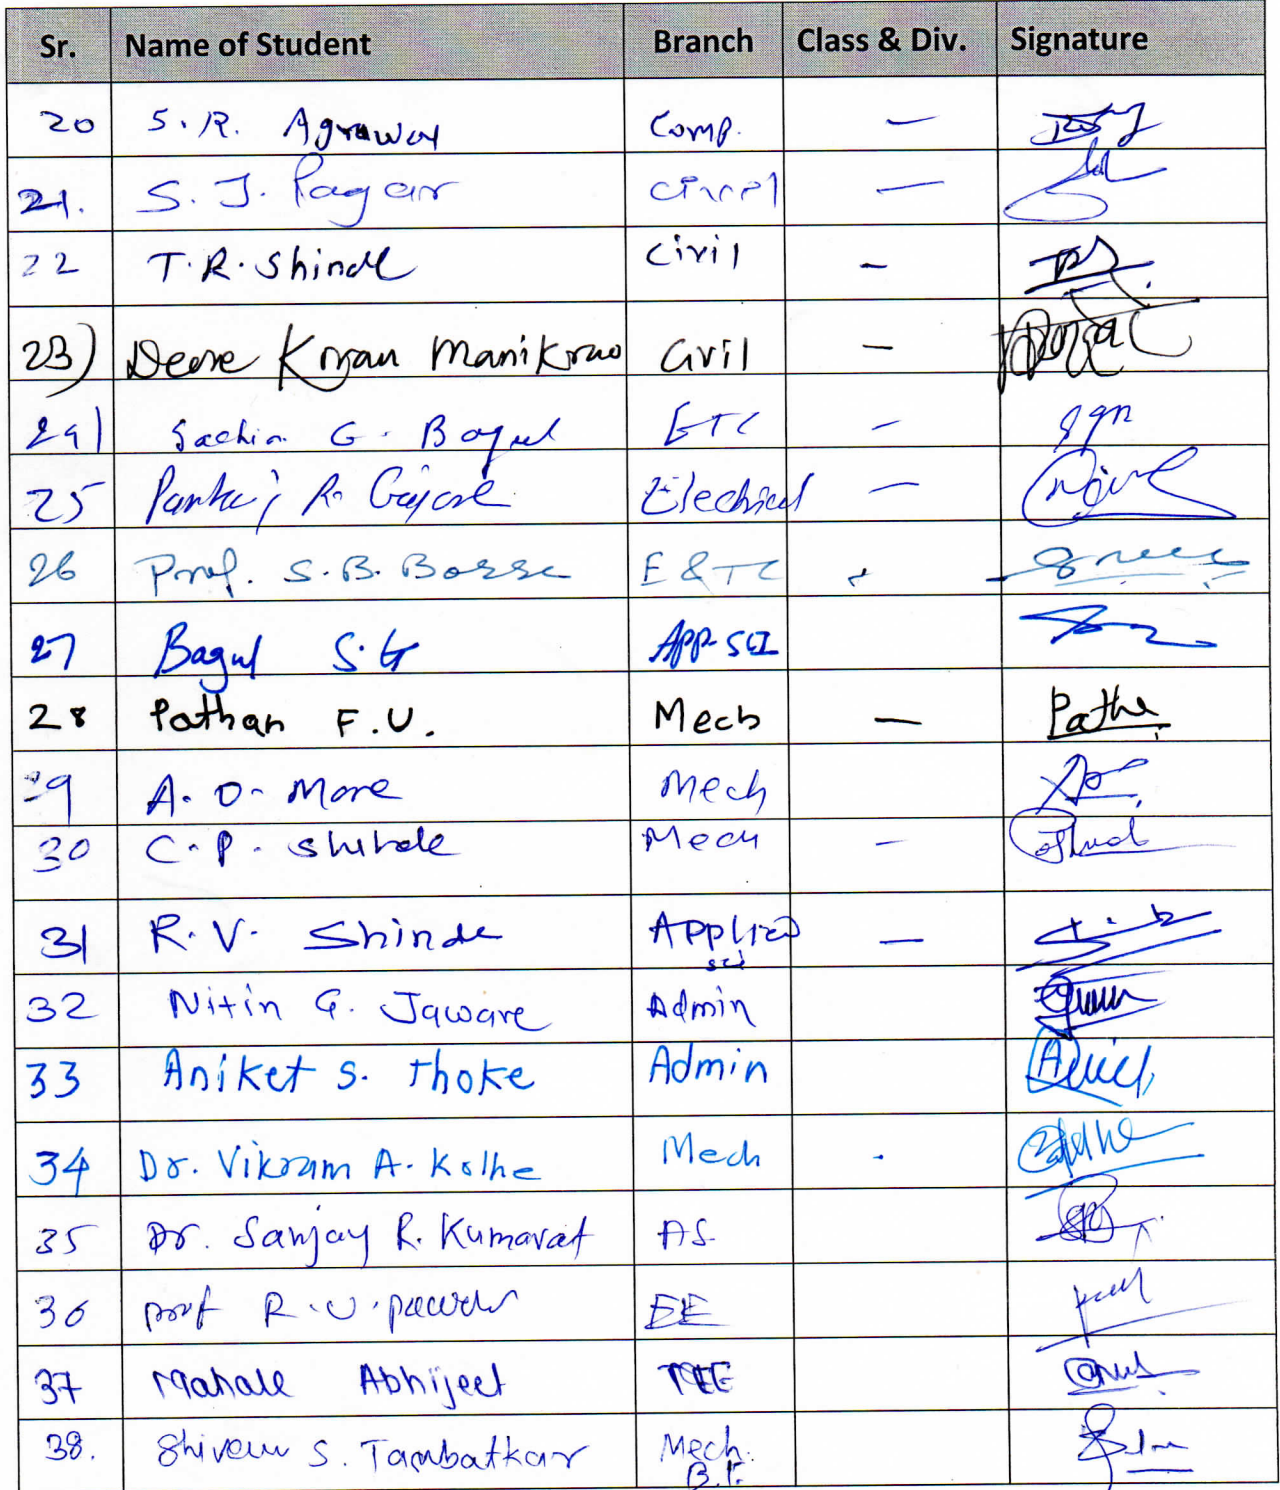 Sr. Name of Student Branch Class & Div. Signature
20 S.R. Agrawal Comp. —
21. S. J. Pagar Civil —
22 T.R. Shinde Civil —
23) Deore Manikrao Civil —
24) Sachin G. Bagul ETC —
25 Pankaj R. Electrical —
26 Prof. S.B. Borse E & TC
27 Bagul S.G App. SCI
28 Pathan F.U. Mech —
29 A. D. More Mech
30 C.P. Shinde Mech —
31 R.V. Shinde Applied —
sci
32 Nitin G. Jaware Admin
33 Aniket S. Thoke Admin
34 Dr. Vikram A. Kolhe Mech
35 Dr. Sanjay R. Kumavat AS.
36 Prof R.U. Pawar EE
37 Mahale Abhijeet
38. S. Tambatkar Mech.